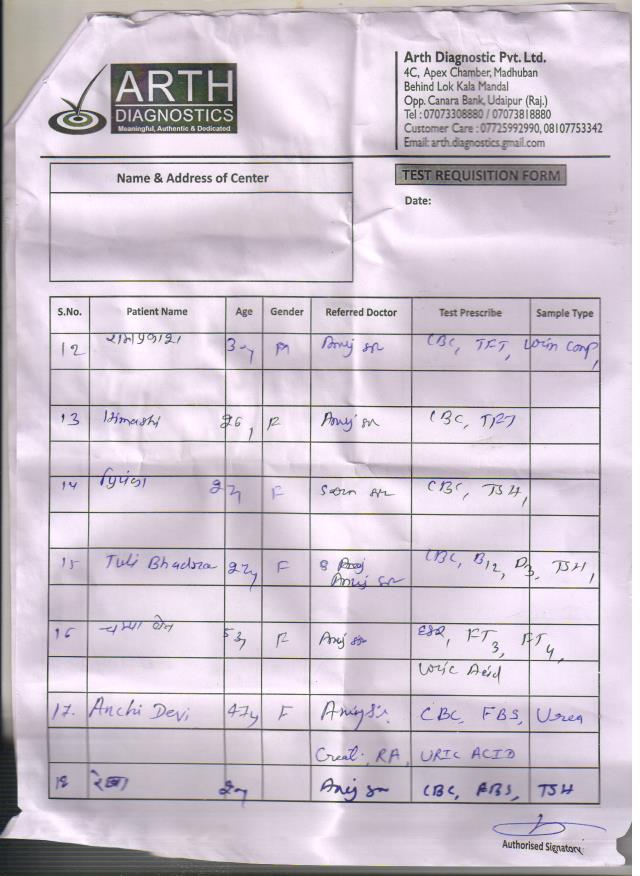 ARTH
DIAGNOSTICS
Meaningful, Authentic & Dedicated
Arth Diagnostic Pvt. Ltd.
4C, Apex Chamber, Madhuban
Behind Lok Kala Mandal
Opp. Canara Bank, Udaipur (Raj.)
Tel : 07073308880 / 07073818880
Customer Care : 07725992990, 08107753342
Email: arth.diagnostics.gmail.com
Name & Address of Center
TEST REQUISITION FORM
Date:
S.No. Patient Name Age Gender Referred Doctor Test Prescribe Sample Type
12 M Anuj sr CBC, TFT,
13 Himashi F Anuj sr CBC, TFT
14 F CBC, TSH,
15 Tuli F CBC, B12, D3, TSH,
Anuj sr
16 F Anuj sr ESR, FT3, FT4,
Uric Acid
17. Anchi Devi 47y F Anuj Sir CBC, FBS, Urea
Creat., RA, URIC ACID
18 रेखा Anuj sr CBC, FBS, TSH
Authorised Signatory